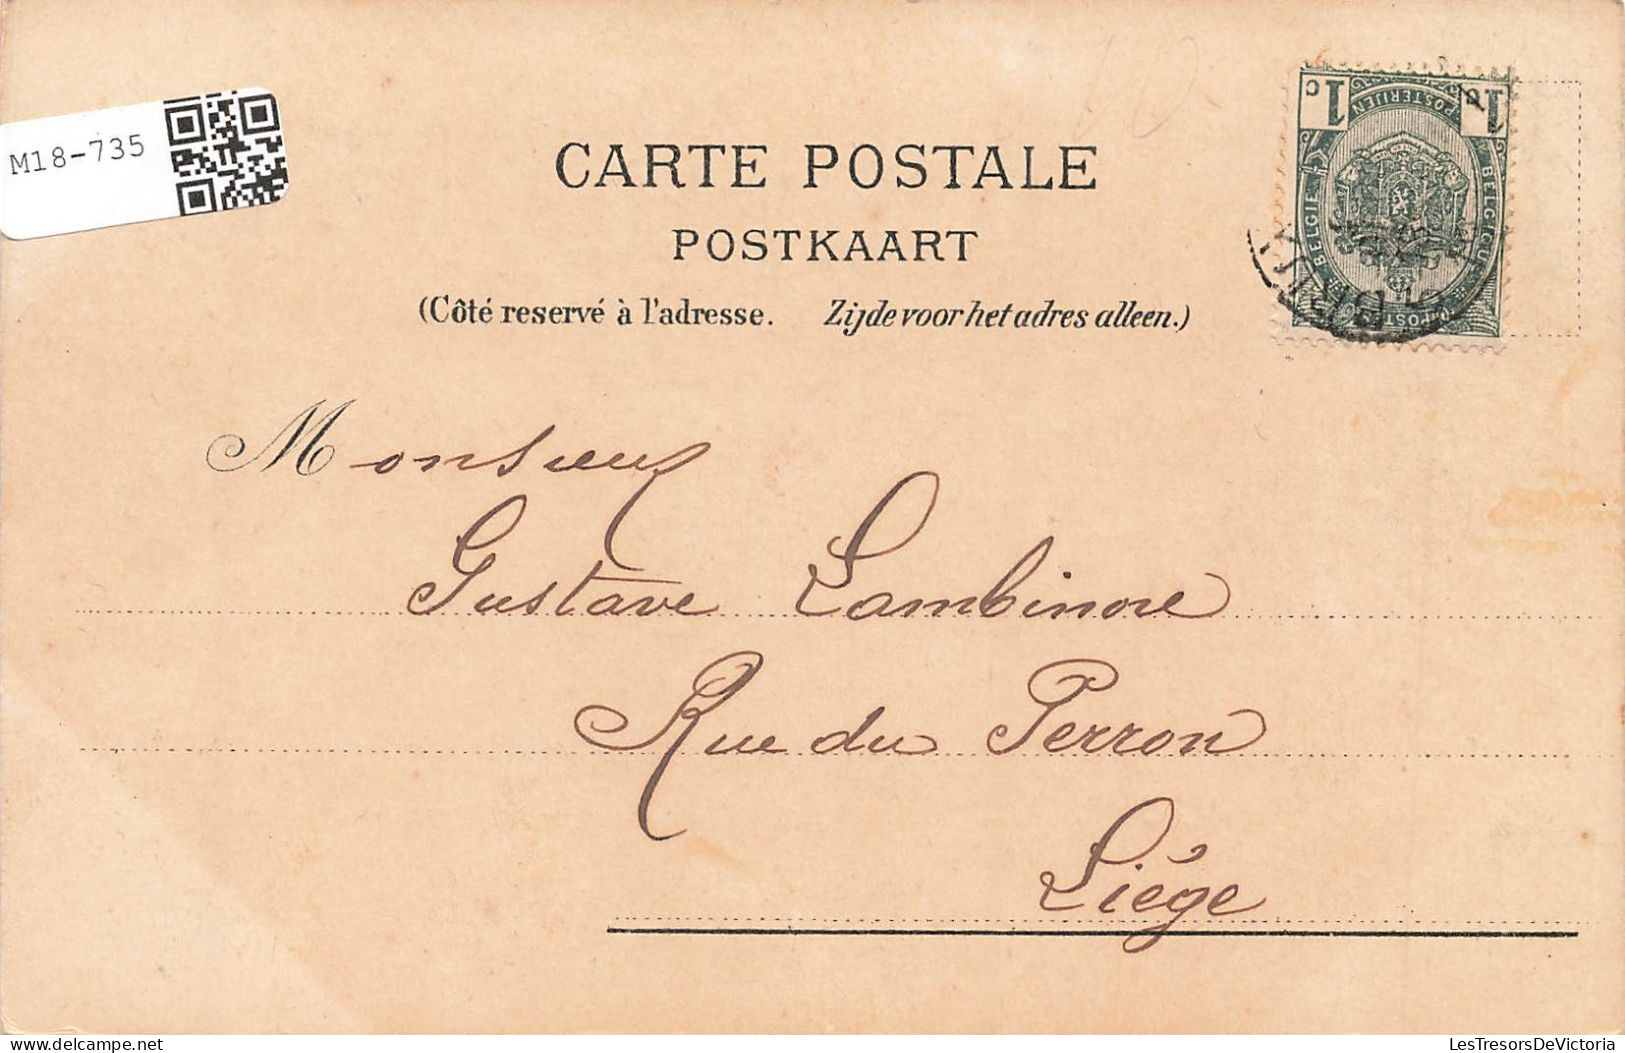 M18-735
CARTE POSTALE
POSTKAART
(Côté reservé à l'adresse. Zijde voor het adres alleen.)
1 c 1
POSTERIJEN
BELGIE BELGIQUE
Monsieur
Gustave Lambinon
Rue du Perron
Liége
delcampe.net
LesTresorsDeVictoria